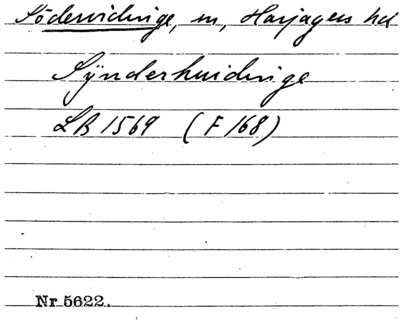 Södervidinge, sn, Harjagers hd
Sÿnderhuidinge
LB 1569 (F 168)
Nr 5622.